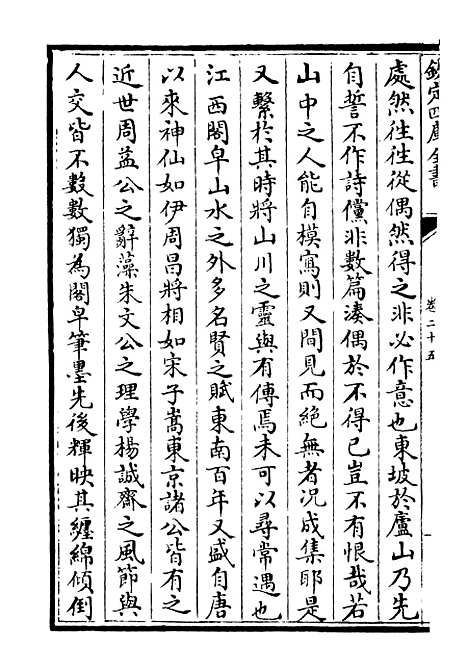 欽定四庫全書
卷二十五
處然往往從偶然得之非必作意也東坡於廬山乃先
自誓不作詩儻非數篇湊偶於不得已豈不有恨哉若
山中之人能自模寫則又間見而絕無者况成集耶是
又繫於其時將山川之靈與有傳焉未可以尋常遇也
江西閤皁山水之外多名賢之賦東南百年又盛自唐
以來神仙如伊周昌將相如宋子嵩東京諸公皆有之
近世周益公之辭藻朱文公之理學楊誠齋之風節與
人交皆不數數獨為閤皁筆墨先後輝映其纏綿傾倒